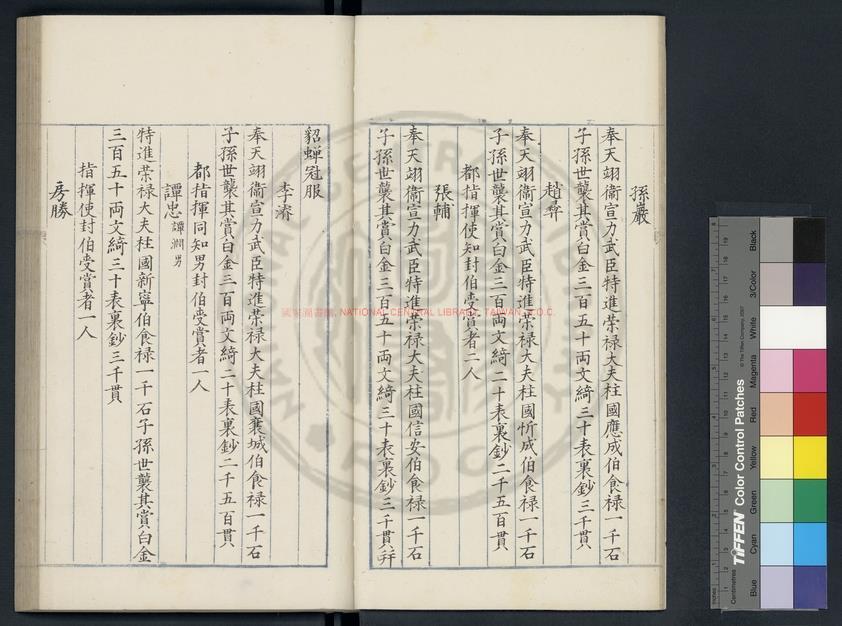 孫巖
奉天翊衞宣力武臣特進荣禄大夫柱國應成伯食禄一千石
子孫世襲其賞白金三百五十両文綺三十表裏鈔三千貫
趙彛
奉天翊衞宣力武臣特進荣禄大夫柱國忻成伯食禄一千石
子孫世襲其賞白金三百両文綺二十表裏鈔二千五百貫
都指揮使知封伯受賞者二人
張輔
奉天翊衞宣力武臣特進荣禄大夫柱國信安伯食禄一千石
子孫世襲其賞白金三百五十両文綺三十表裏鈔三千貫并
貂蟬冠服
李濬
奉天翊衞宣力武臣特進荣禄大夫柱國襄城伯食禄一千石
子孫世襲其賞白金三百両文綺二十表裏鈔二千五百貫
都指揮同知男封伯受賞者一人
譚忠 譚淵男
特進荣禄大夫柱國新寧伯食禄一千石子孫世襲其賞白金
三百五十両文綺三十表裏鈔三千貫
指揮使封伯受賞者一人
房勝
國家圖書館, NATIONAL CENTRAL LIBRARY, TAIWAN, R.O.C.
TIFFEN Color Control Patches
© The Tiffen Company, 2007
Centimetres
Inches
Blue
Cyan
Green
Yellow
Red
Magenta
White
3/Color
Black